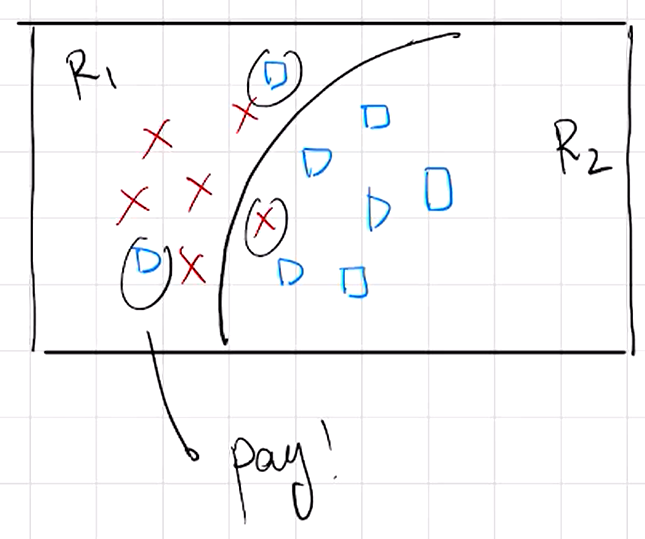 R₁
R₂
pay!